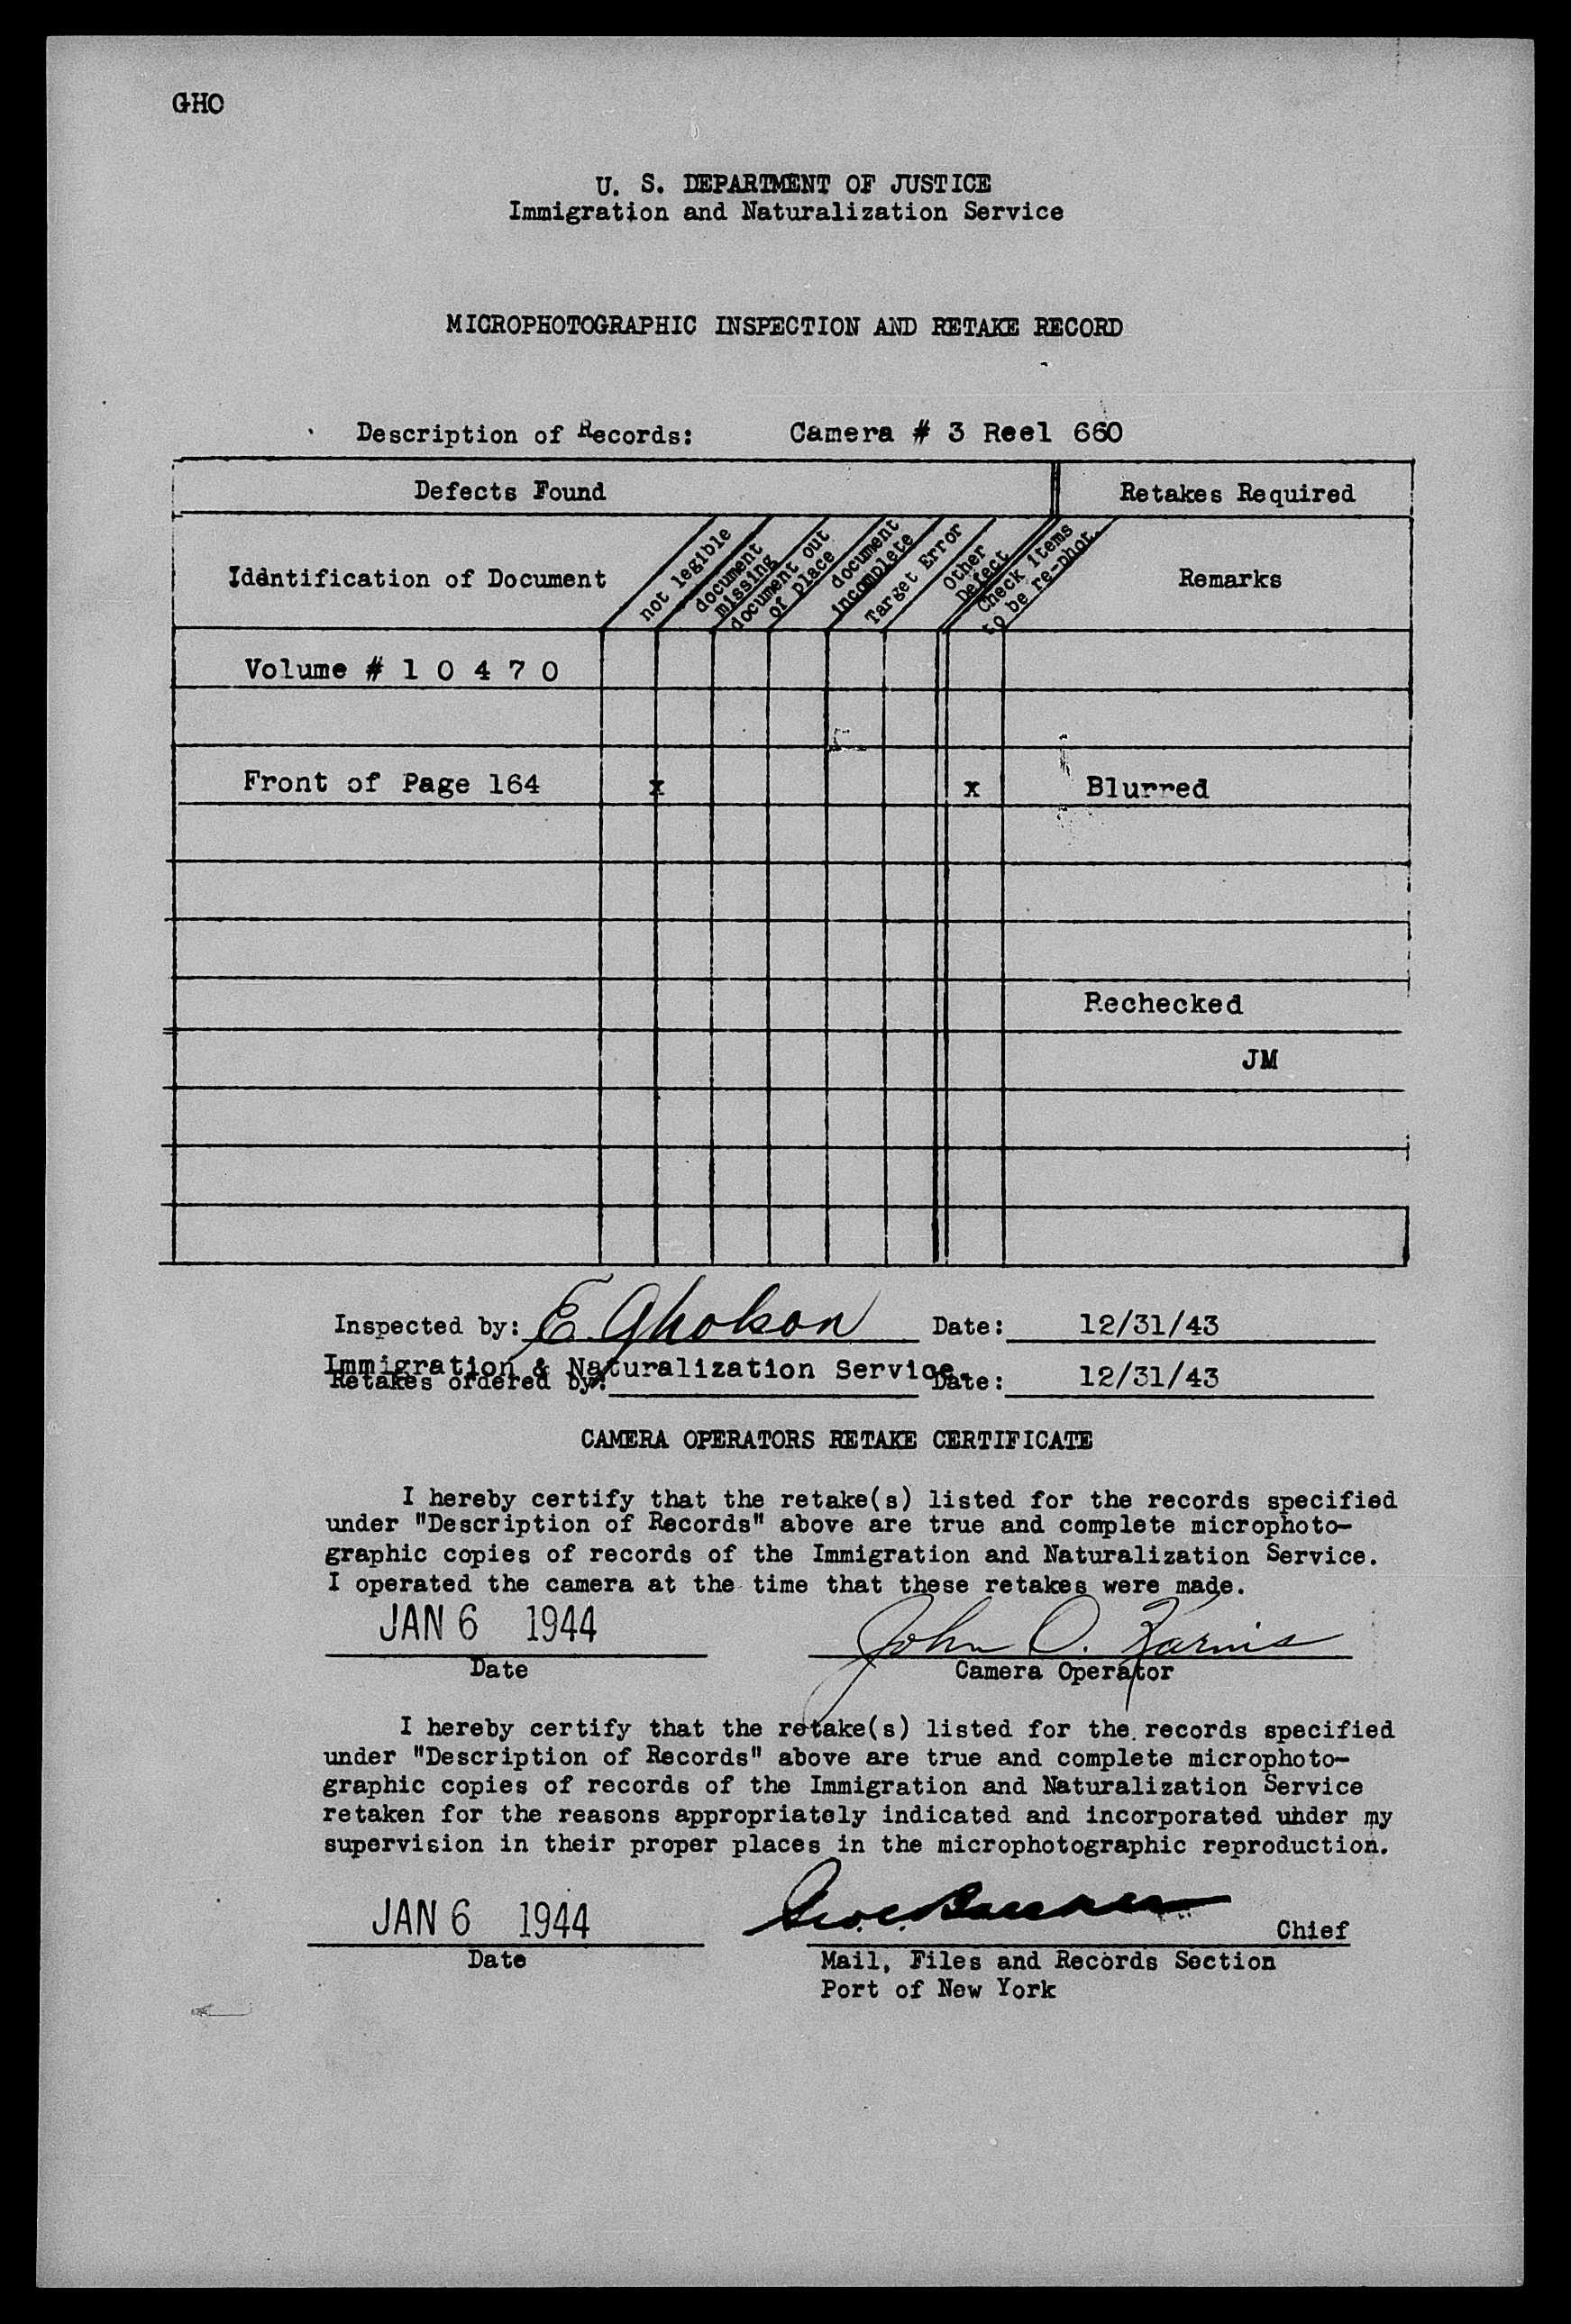 GHO
U. S. DEPARTMENT OF JUSTICE
Immigration and Naturalization Service
MICROPHOTOGRAPHIC INSPECTION AND RETAKE RECORD
Description of Records: Camera # 3 Reel 660
Defects Found Retakes Required
Identification of Document
not legible
document missing
document out of place
document incomplete
Target Error
Other Defect
Check items to be re-phot.
Remarks
Volume # 1 0 4 7 0
Front of Page 164 x x Blurred
Rechecked
JM
Inspected by: E Gholson Date: 12/31/43
Immigration & Naturalization Service.
Retakes ordered by: Date: 12/31/43
CAMERA OPERATORS RETAKE CERTIFICATE
I hereby certify that the retake(s) listed for the records specified
under "Description of Records" above are true and complete microphoto-
graphic copies of records of the Immigration and Naturalization Service.
I operated the camera at the time that these retakes were made.
JAN 6 1944 John O.
Date Camera Operator
I hereby certify that the retake(s) listed for the records specified
under "Description of Records" above are true and complete microphoto-
graphic copies of records of the Immigration and Naturalization Service
retaken for the reasons appropriately indicated and incorporated under my
supervision in their proper places in the microphotographic reproduction.
JAN 6 1944 Chief
Date Mail, Files and Records Section
Port of New York